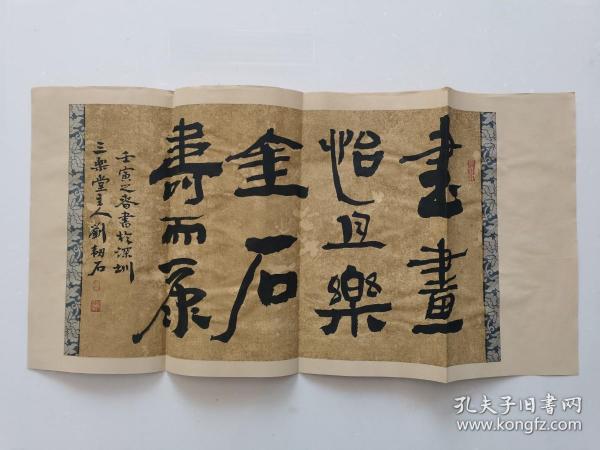 書畫
怡且樂
金石
壽而康
壬寅之春書於深圳
三樂堂主人劉韌石
孔夫子旧書网
www.kongfz.com